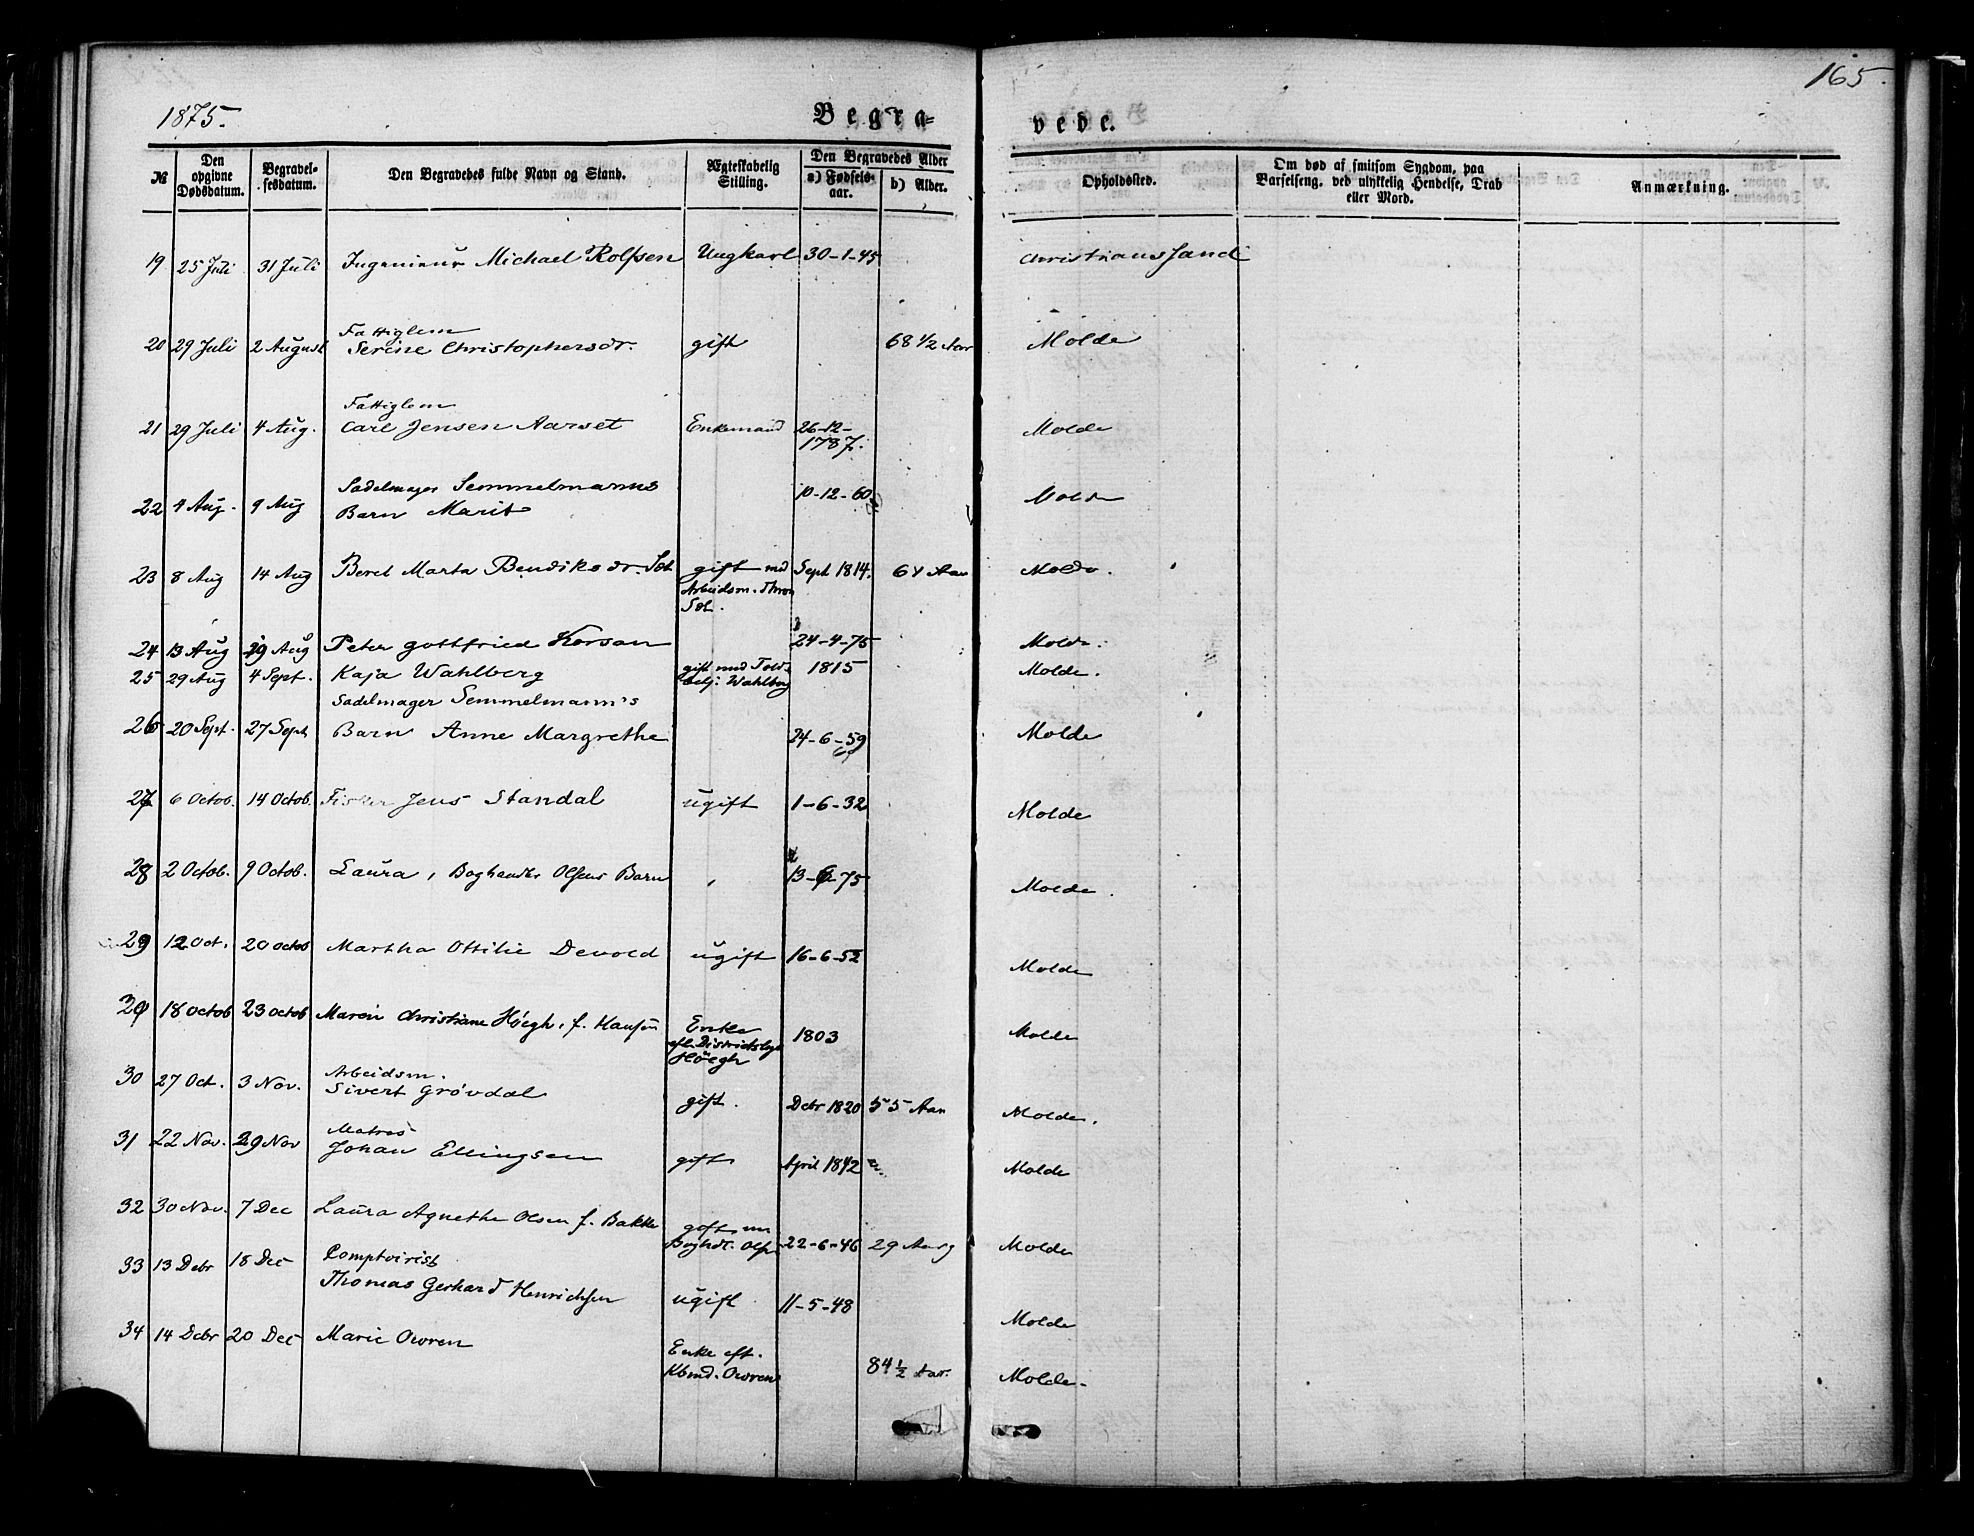 165.
1875.
Begra=
vede.
№
Den opgivne Dødsdatum.
Begravel-sesdatum.
Den Begravedes fulde Navn og Stand.
Ægteskabelig Stilling.
Den Begravedes Alder
a) Fødsels-aar.
b) Alder.
Opholdssted.
Om død af smitsom Sygdom, paa Barselseng, ved ulykkelig Hendelse, Drab eller Mord.
Anmærkning.
19 25 Juli 31 Juli Ingenieur Michael Rolfsen Ungkarl 30-1-45 Christianssand
Fattiglem
20 29 Juli 2 August Serine Christophersdr. gift 68 1/2 Aar Molde
Fattiglem
21 29 Juli 4 Aug. Carl Jensen Aarset Enkemand 26-12-1787. Molde
Sadelmager Semmelmanns
22 4 Aug. 9 Aug Barn Marit 10-12-60 Molde
23 8 Aug 14 Aug Beret Marta Bendiksdr. Sæt gift md Arbeidsm. Sæt. Sept 1814. 61 Aar Molde.
24 13 Aug 19 Aug Peter Gottfried Korsan 24-4-75 Molde.
25 29 Aug 4 Sept. Kaja Wahlberg gift med Wahlberg 1815 Molde.
Sadelmager Semmelmann's
26 20 Sept. 27 Sept Barn Anne Margrethe 24-6-59 Molde
27 6 Octob. 14 Octob. Fisker Jens Standal ugift 1-6-32 Molde
28 2 Octob. 9 Octob. Laura, Boghandler Olsens Barn 13-6-75 Molde.
29 12 Oct. 20 Octob Martha Ottilie Devold ugift 16-6-52 Molde
29 18 Octob 23 Octob Maren Christiane Høegh, f. Hansen Enke eft. Høegh 1803 Molde
Arbeidsm.
30 27 Oct. 3 Nov. Sivert Grøvdal gift. Debr 1820 55 Aar Molde.
Matros
31 22 Nov. 29 Nov Johan Ellingsen gift April 1842 Molde
32 30 Nov. 7 Dec Laura Agnethe Olsen f. Bakke gift m Boghdl. Olsen 22-6-46 29 Aar Molde
Comptoirist
33 13 Debr 18 Dec Thomas Gerhard Henrichsen ugift 11-5-48 Molde
34 14 Debr 20 Dec Marie Owren Enke eft. Kbmd. Owren 84 1/2 Aar. Molde.